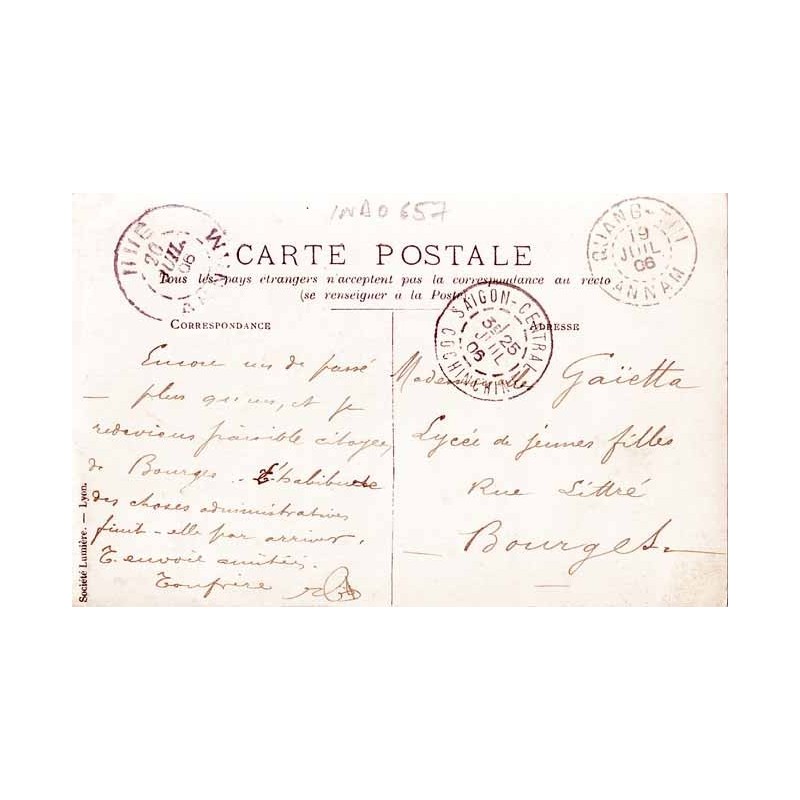 INDO 657
HUE ANNAM
20
JUIL
06
QUANG-NGAI ANNAM
19
JUIL
06
CARTE POSTALE
Tous les pays étrangers n'acceptent pas la correspondance au recto
(se renseigner a la Poste)
SAIGON-CENTRAL COCHINCHINE
3E/25
JUIL
06
CORRESPONDANCE
Encore un de passé
— plus qu'un, et je
redeviens paisible citoyen
de Bourges.
des choses administratives
finit-elle par arriver.
T. envoie amitiés.
Ton frère
ADRESSE
Mademoiselle Gaïetta
Lycée de jeunes filles
Rue Littré
— Bourges —
Société Lumière. — Lyon.